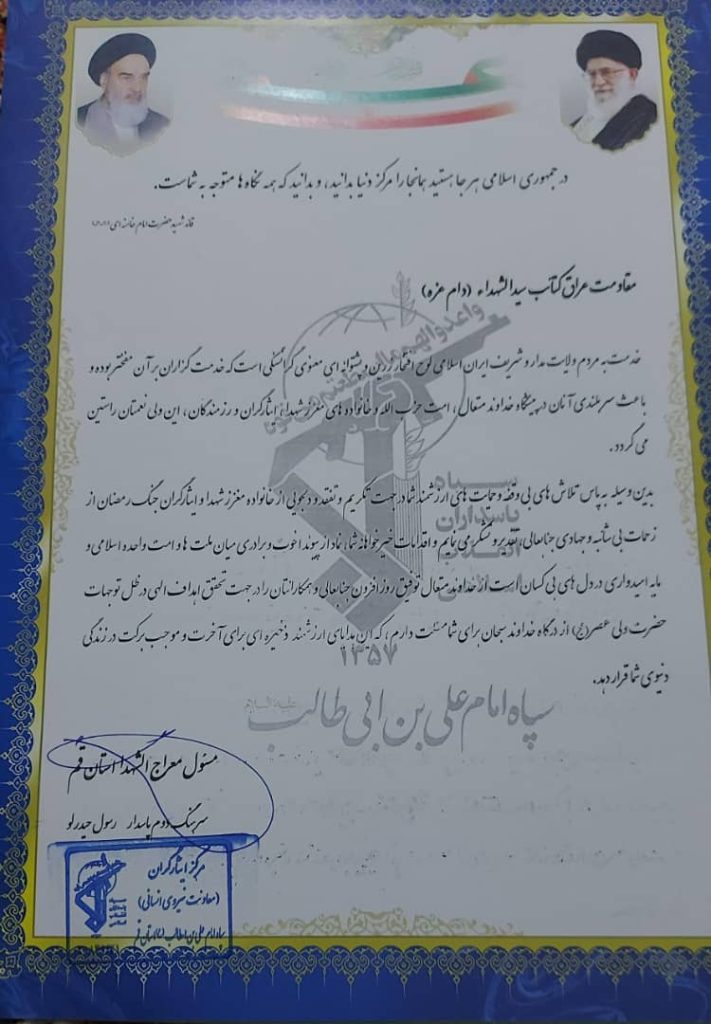 در جمهوری اسلامی هر جا هستید همانجا را مرکز دنیا بدانید، و بدانید که همه نگاه‌ها متوجه به شماست.
قائد شهید حضرت امام خامنه ای
مقاومت عراق کتائب سید الشهداء (دام عزه)
خدمت به مردم ولایت مدار و شریف ایران اسلامی لوح افتخار زرین و پشتوانه ای معنوی گرانسنگی است که خدمت گزاران بر آن مفتخر بوده و
باعث سربلندی آنان در پیشگاه خداوند متعال، امت حزب الله و خانواده های معزز شهدا، ایثارگران و رزمندگان، این ولی نعمتان راستین
می گردد.
بدین وسیله به پاس تلاش های بی وقفه و حمات های ارزشمند شما در جهت تکریم و تفقد و دلجویی از خانواده معزز شهدا و ایثارگران جنگ رمضان از
زحمات بی شائبه و جهادی جنابعالی، تقدیر و تشکر می نمایم و اقدامات خیرخواهانه شما، نماد از پیوند اخوت و برادری میان ملت ها و امت واحده اسلامی و
مایه امیدواری در دل های بی کسان است از خداوند متعال توفیق روز افزون جنابعالی و همکارانتان را در جهت تحقق اهداف الهی در ظل توجهات
حضرت ولی عصر (عج) از درگاه خداوند سبحان برای شما مسئلت دارم، که این هدایای ارزشمند ذخیره ای برای آخرت و موجب برکت در زندگی
دنیوی شما قرار دهد.
سپاه پاسداران انقلاب اسلامی
۱۳۵۷
سپاه امام علی بن ابی طالب علیه السلام
مسئول معراج الشهدا استان قم
سرهنگ دوم پاسدار رسول حیدرلو
مرکز ایثارگران
(معاونت نیروی انسانی)
سپاه امام علی بن ابیطالب (ع) استان قم